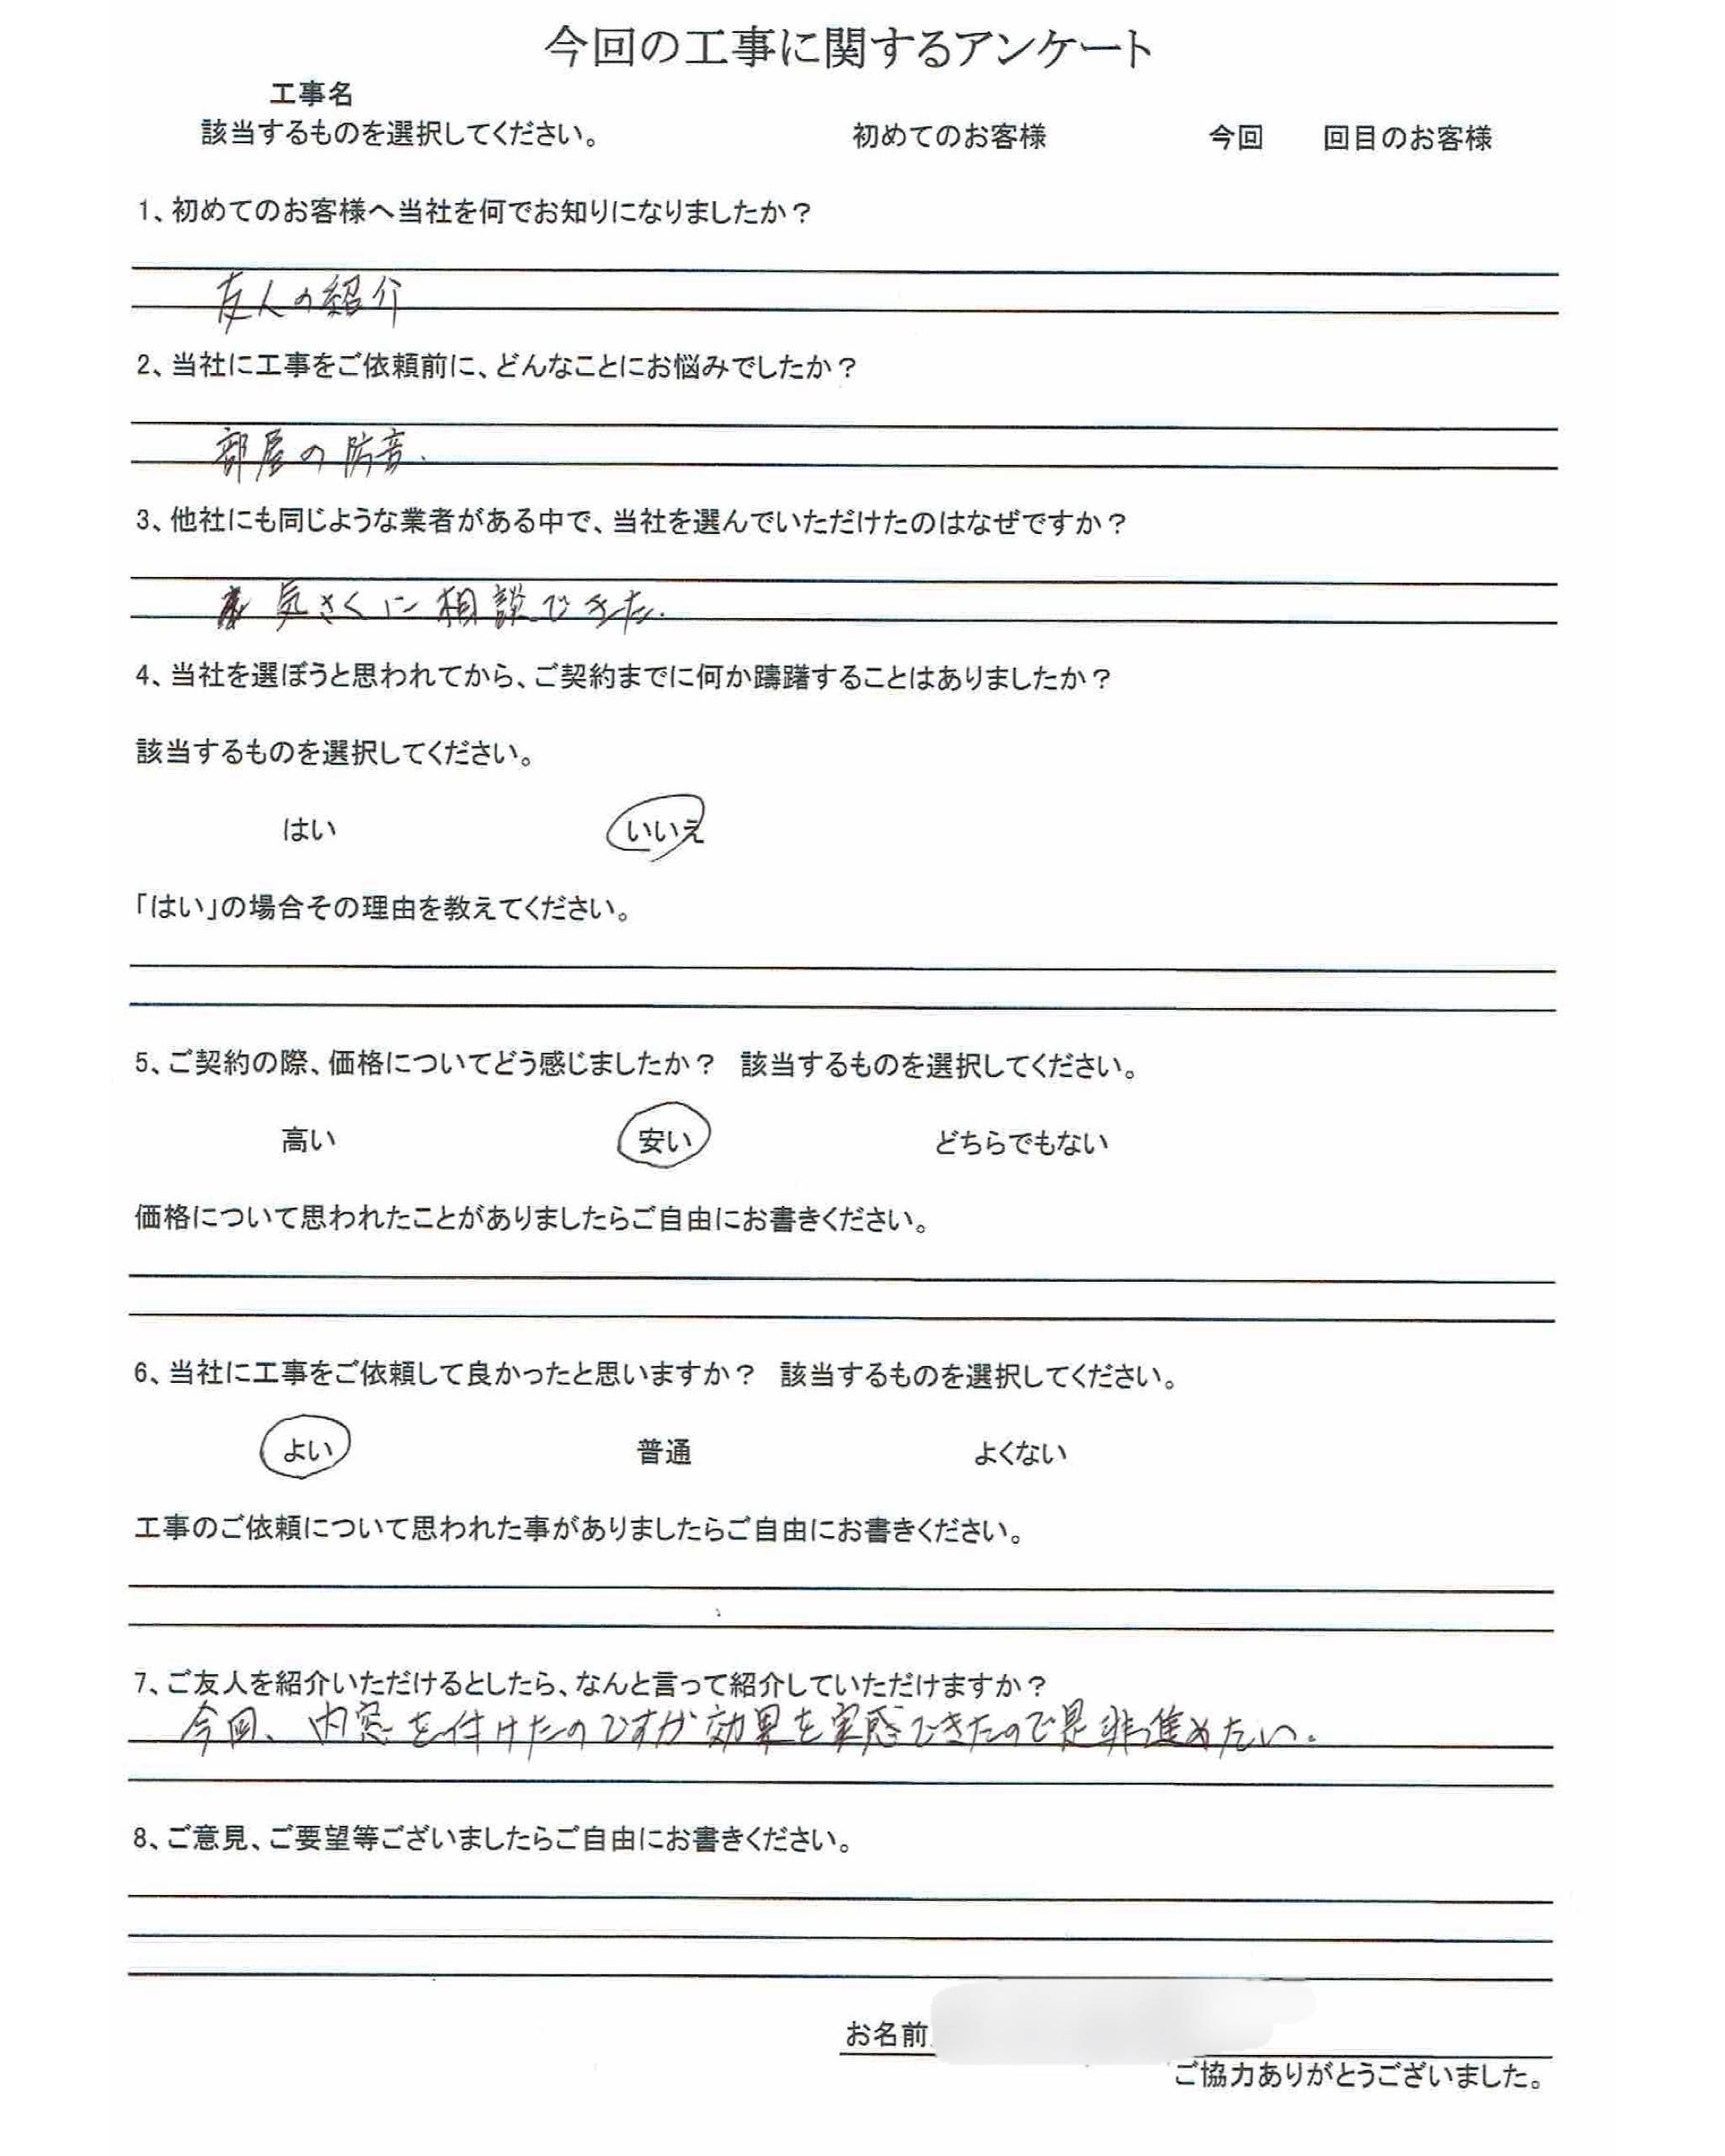 今回の工事に関するアンケート
工事名
該当するものを選択してください。 初めてのお客様 今回 回目のお客様
1、初めてのお客様へ当社を何でお知りになりましたか？
友人の紹介
2、当社に工事をご依頼前に、どんなことにお悩みでしたか？
部屋の防音.
3、他社にも同じような業者がある中で、当社を選んでいただけたのはなぜですか？
気さくに相談できた.
4、当社を選ぼうと思われてから、ご契約までに何か躊躇することはありましたか？
該当するものを選択してください。
はい いいえ
「はい」の場合その理由を教えてください。
5、ご契約の際、価格についてどう感じましたか？ 該当するものを選択してください。
高い 安い どちらでもない
価格について思われたことがありましたらご自由にお書きください。
6、当社に工事をご依頼して良かったと思いますか？ 該当するものを選択してください。
よい 普通 よくない
工事のご依頼について思われた事がありましたらご自由にお書きください。
7、ご友人を紹介いただけるとしたら、なんと言って紹介していただけますか？
今回、内窓を付けたのですが効果を実感できたので是非進めたい。
8、ご意見、ご要望等ございましたらご自由にお書きください。
お名前
ご協力ありがとうございました。